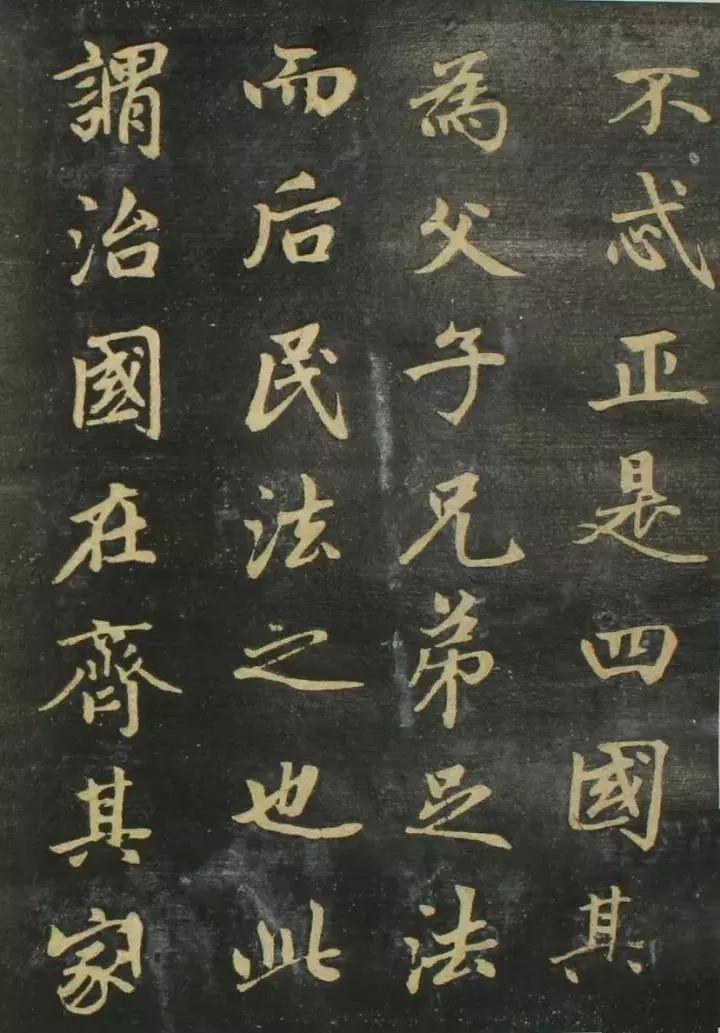 不忒正是四國其
為父子兄弟足法
而后民法之也此
謂治國在齊其家